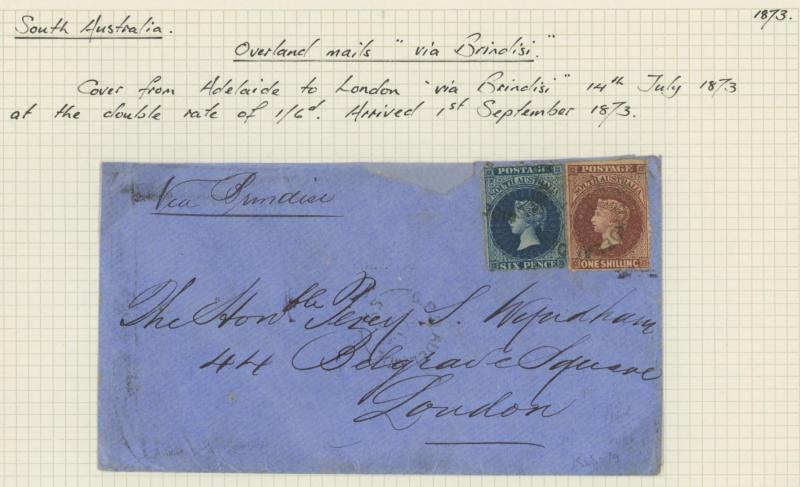 1873.
South Australia.
Overland mails "via Brindisi."
Cover from Adelaide to London "via Brindisi" 14th July 1873
at the double rate of 1/6d. Arrived 1st September 1873.
Via Brindisi
POSTAGE
SOUTH AUSTRALIA
SIX PENCE
POSTAGE
SOUTH AUSTRALIA
ONE SHILLING
The Honble Percy S. Wyndham
44 Belgrave Square
London